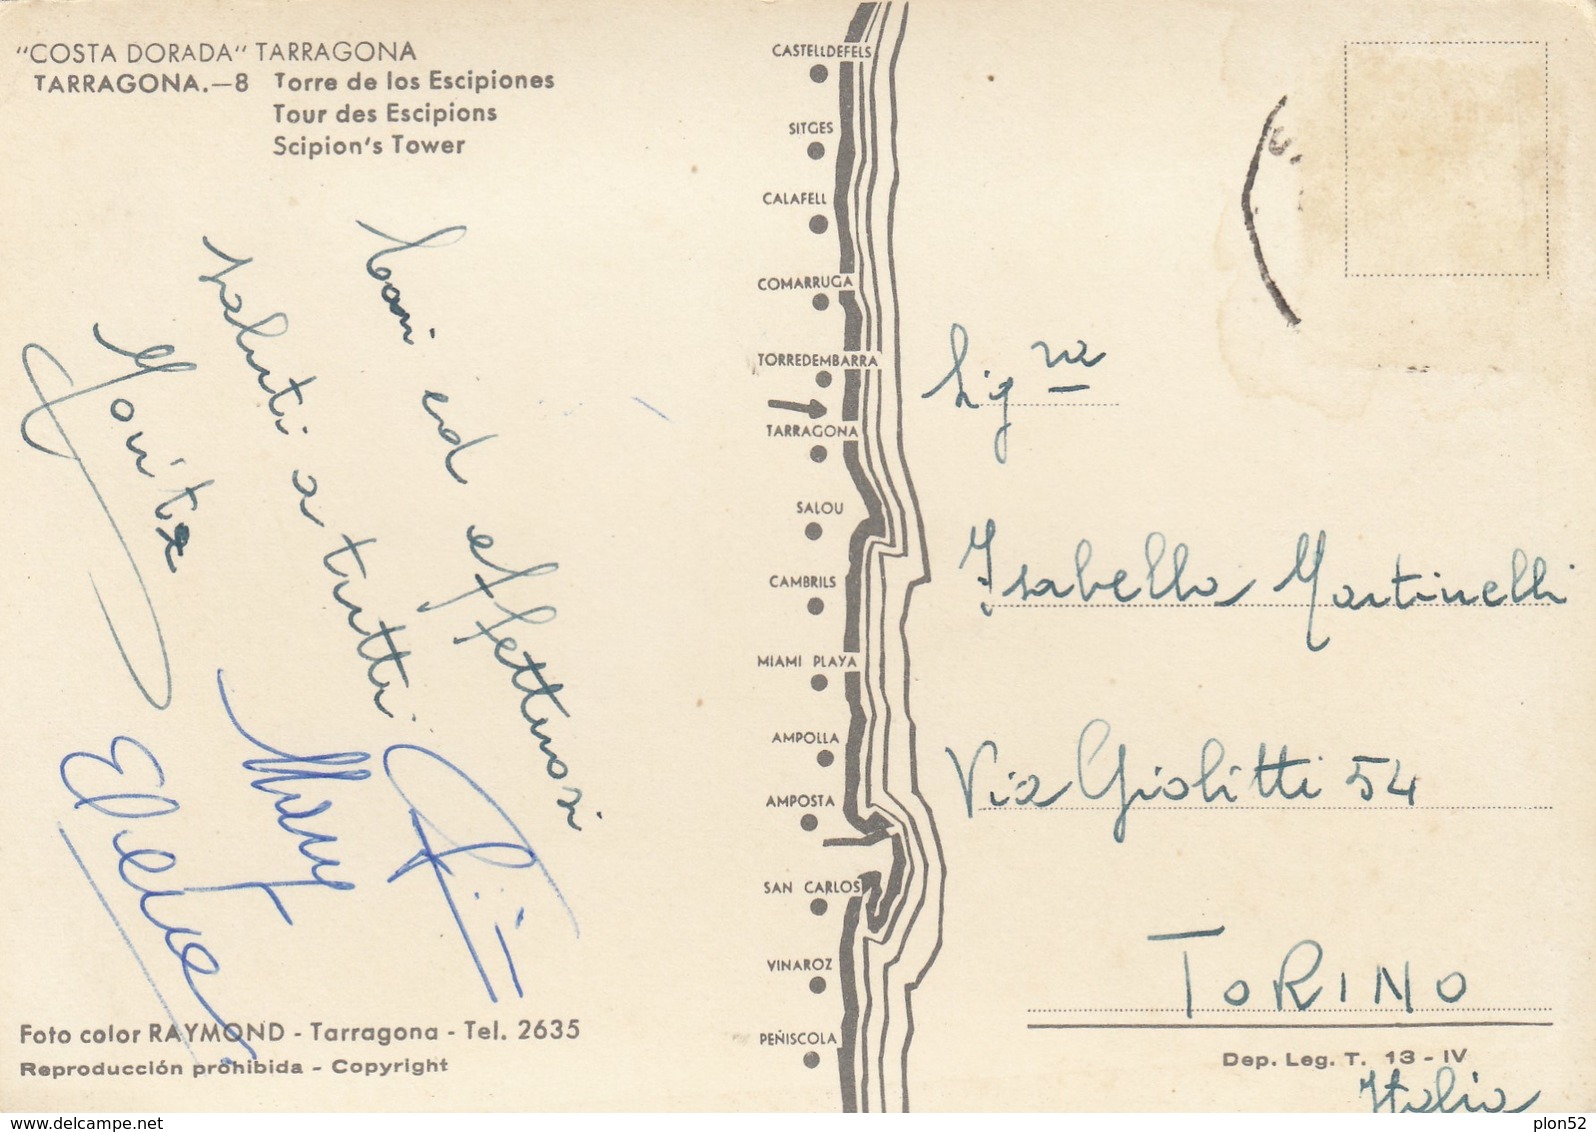 "COSTA DORADA" TARRAGONA
TARRAGONA.—8 Torre de los Escipiones
Tour des Escipions
Scipion's Tower
Cari ed affettuosi
saluti a tutti
Mary
Foto color RAYMOND - Tarragona - Tel. 2635
Reproducción prohibida - Copyright
CASTELLDEFELS
SITGES
CALAFELL
COMARRUGA
TORREDEMBARRA
TARRAGONA
SALOU
CAMBRILS
MIAMI PLAYA
AMPOLLA
AMPOSTA
SAN CARLOS
VINAROZ
PEÑISCOLA
Sig.ra
Isabella Martinelli
Via Giolitti 54
TORINO
Dep. Leg. T. 13 - IV
Italia
delcampe.net
plon52